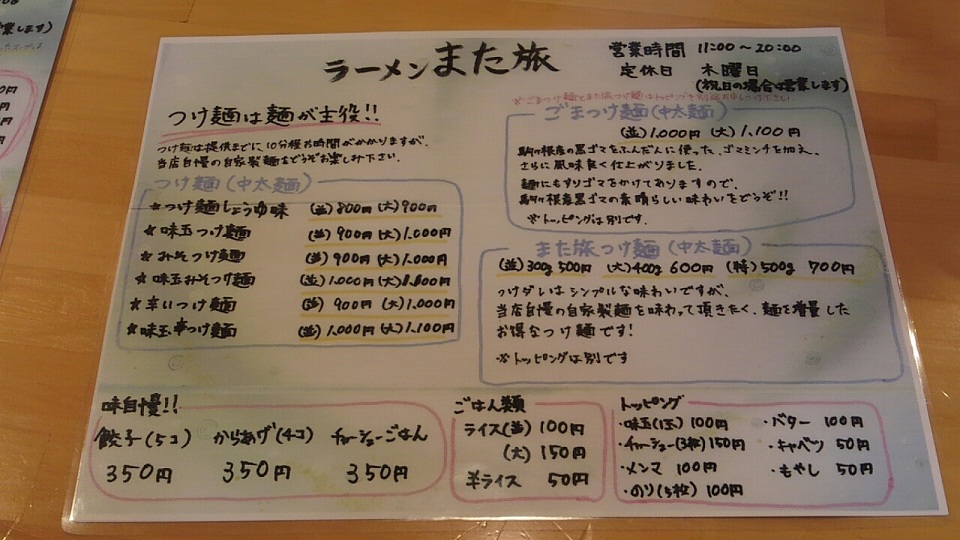 ラーメンまた旅
営業時間 11:00～20:00
定休日 木曜日
(祝日の場合は営業します)
つけ麺は麺が主役!!
つけ麺は提供までに、10分程お時間がかかりますが、
当店自慢の自家製麺をどうぞお楽しみ下さい。
つけ麺(中太麺)
★つけ麺しょうゆ味 (並)800円(大)900円
★味玉つけ麺 (並)900円(大)1.000円
★みそつけ麺 (並)900円(大)1.000円
★味玉みそつけ麺 (並)1.000円(大)1.100円
★辛いつけ麺 (並)900円(大)1.000円
★味玉辛つけ麺 (並)1.000円(大)1.100円
※ごまつけ麺とまた旅つけ麺はトッピングを別途お申しつけ下さい
ごまつけ麺(中太麺)
(並)1.000円(大)1.100円
駒ヶ根産の黒ゴマをふんだんに使った、ゴマミンチを加え、
さらに風味良く仕上がりました。
麺にもすりゴマをかけてありますので、
駒ヶ根産黒ゴマの素晴らしい味わいをどうぞ!!
※トッピングは別です。
また旅つけ麺(中太麺)
(並)300g 500円 (大)400g 600円 (特)500g 700円
つけダレはシンプルな味わいですが、
当店自慢の自家製麺を味わって頂きたく、麺を増量した
お得なつけ麺です!
※トッピングは別です
味自慢!!
餃子(5コ) からあげ(4コ) チャーシューごはん
350円 350円 350円
ごはん類
ライス(並) 100円
(大) 150円
半ライス 50円
トッピング
・味玉(1玉) 100円
・チャーシュー(3枚) 150円
・メンマ 100円
・のり(5枚) 100円
・バター 100円
・キャベツ 50円
・もやし 50円